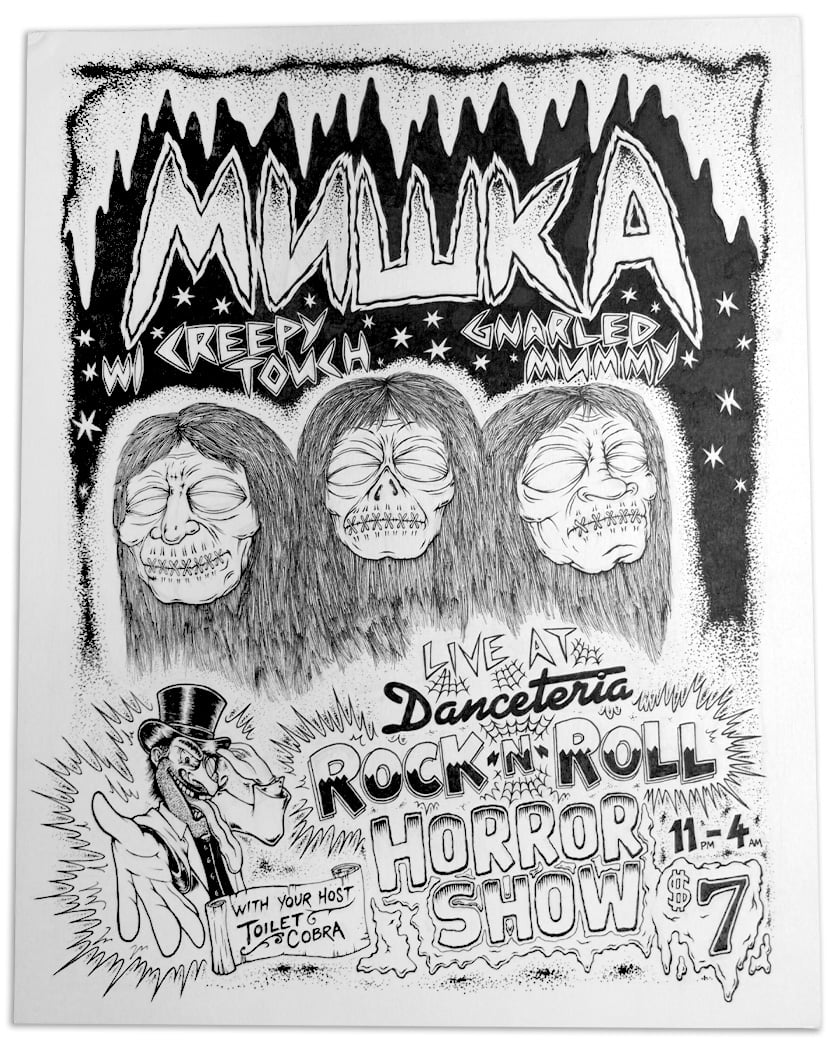 МИШКА
W/ CREEPY TOUCH
GNARLED MUMMY
LIVE AT
Danceteria
ROCK-N-ROLL
HORROR
SHOW
11PM-4AM
$7
WITH YOUR HOST
TOILET
COBRA